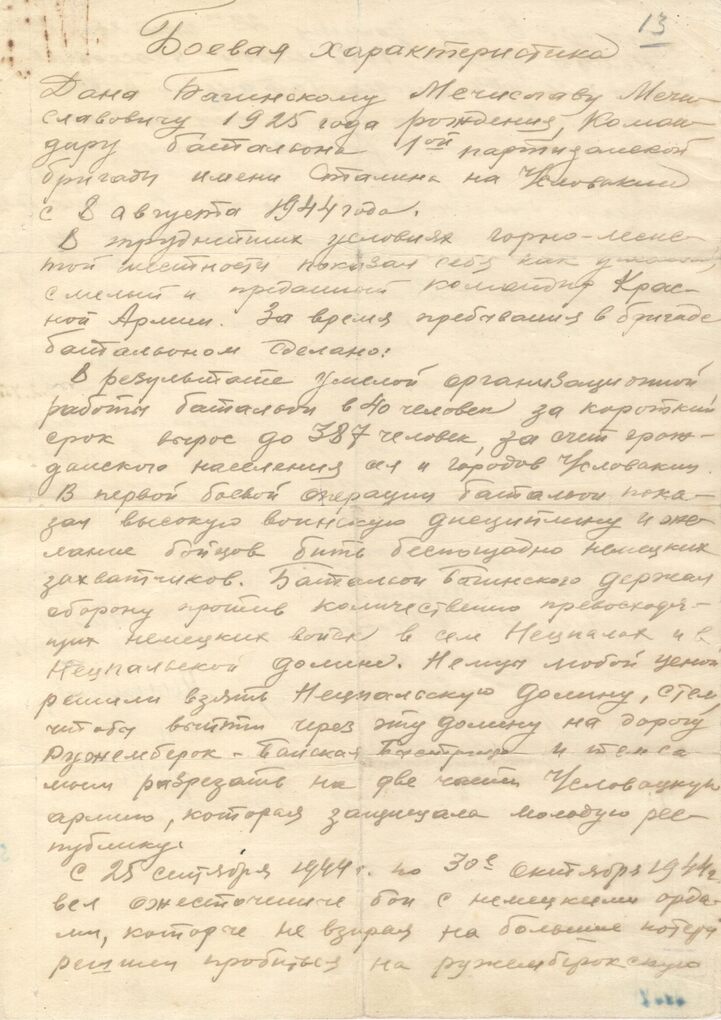 13
Боевая характеристика
Дана Багинскому Мечиславу Мечи-
славовичу 1925 года рождения, Коман-
диру батальона 1ой партизанской
бригады имени Сталина на Чсловакии
с 8 августа 1944 года.
В труднейших условиях горно-лесис-
той местности показал себя как
смелый и преданный командир Крас-
ной Армии. За время пребывания в бригаде
батальоном сделано:
В результате умелой организационной
работы батальон в 40 человек за короткий
срок вырос до 387 человек, за счет граж-
данского населения сел и городов Чсловакии.
В первой боевой операции батальон пока-
зал высокую воинскую дисциплину и же-
лание бойцов бить беспощадно немецких
захватчиков. Батальон Багинского держал
оборону против количественно превосходя-
щих немецких войск в сем Нецпалах и в
Нецпальской долине. Немцы любой ценой
решили взять Нецпальскую долину, с тем,
чтобы выйти через эту долину на дорогу
Ружемберок - Банская Быстрица и тем са
мым разрезать на две части Чсловацкую
армию, которая защищала молодую рес-
публику.
С 25 сентября 1944 г. по 30е октября 1944 г.
вел ожесточение бои с немецкими орда-
ми, которые не взирая на большие потери
решили пробиться на ружемберокскую